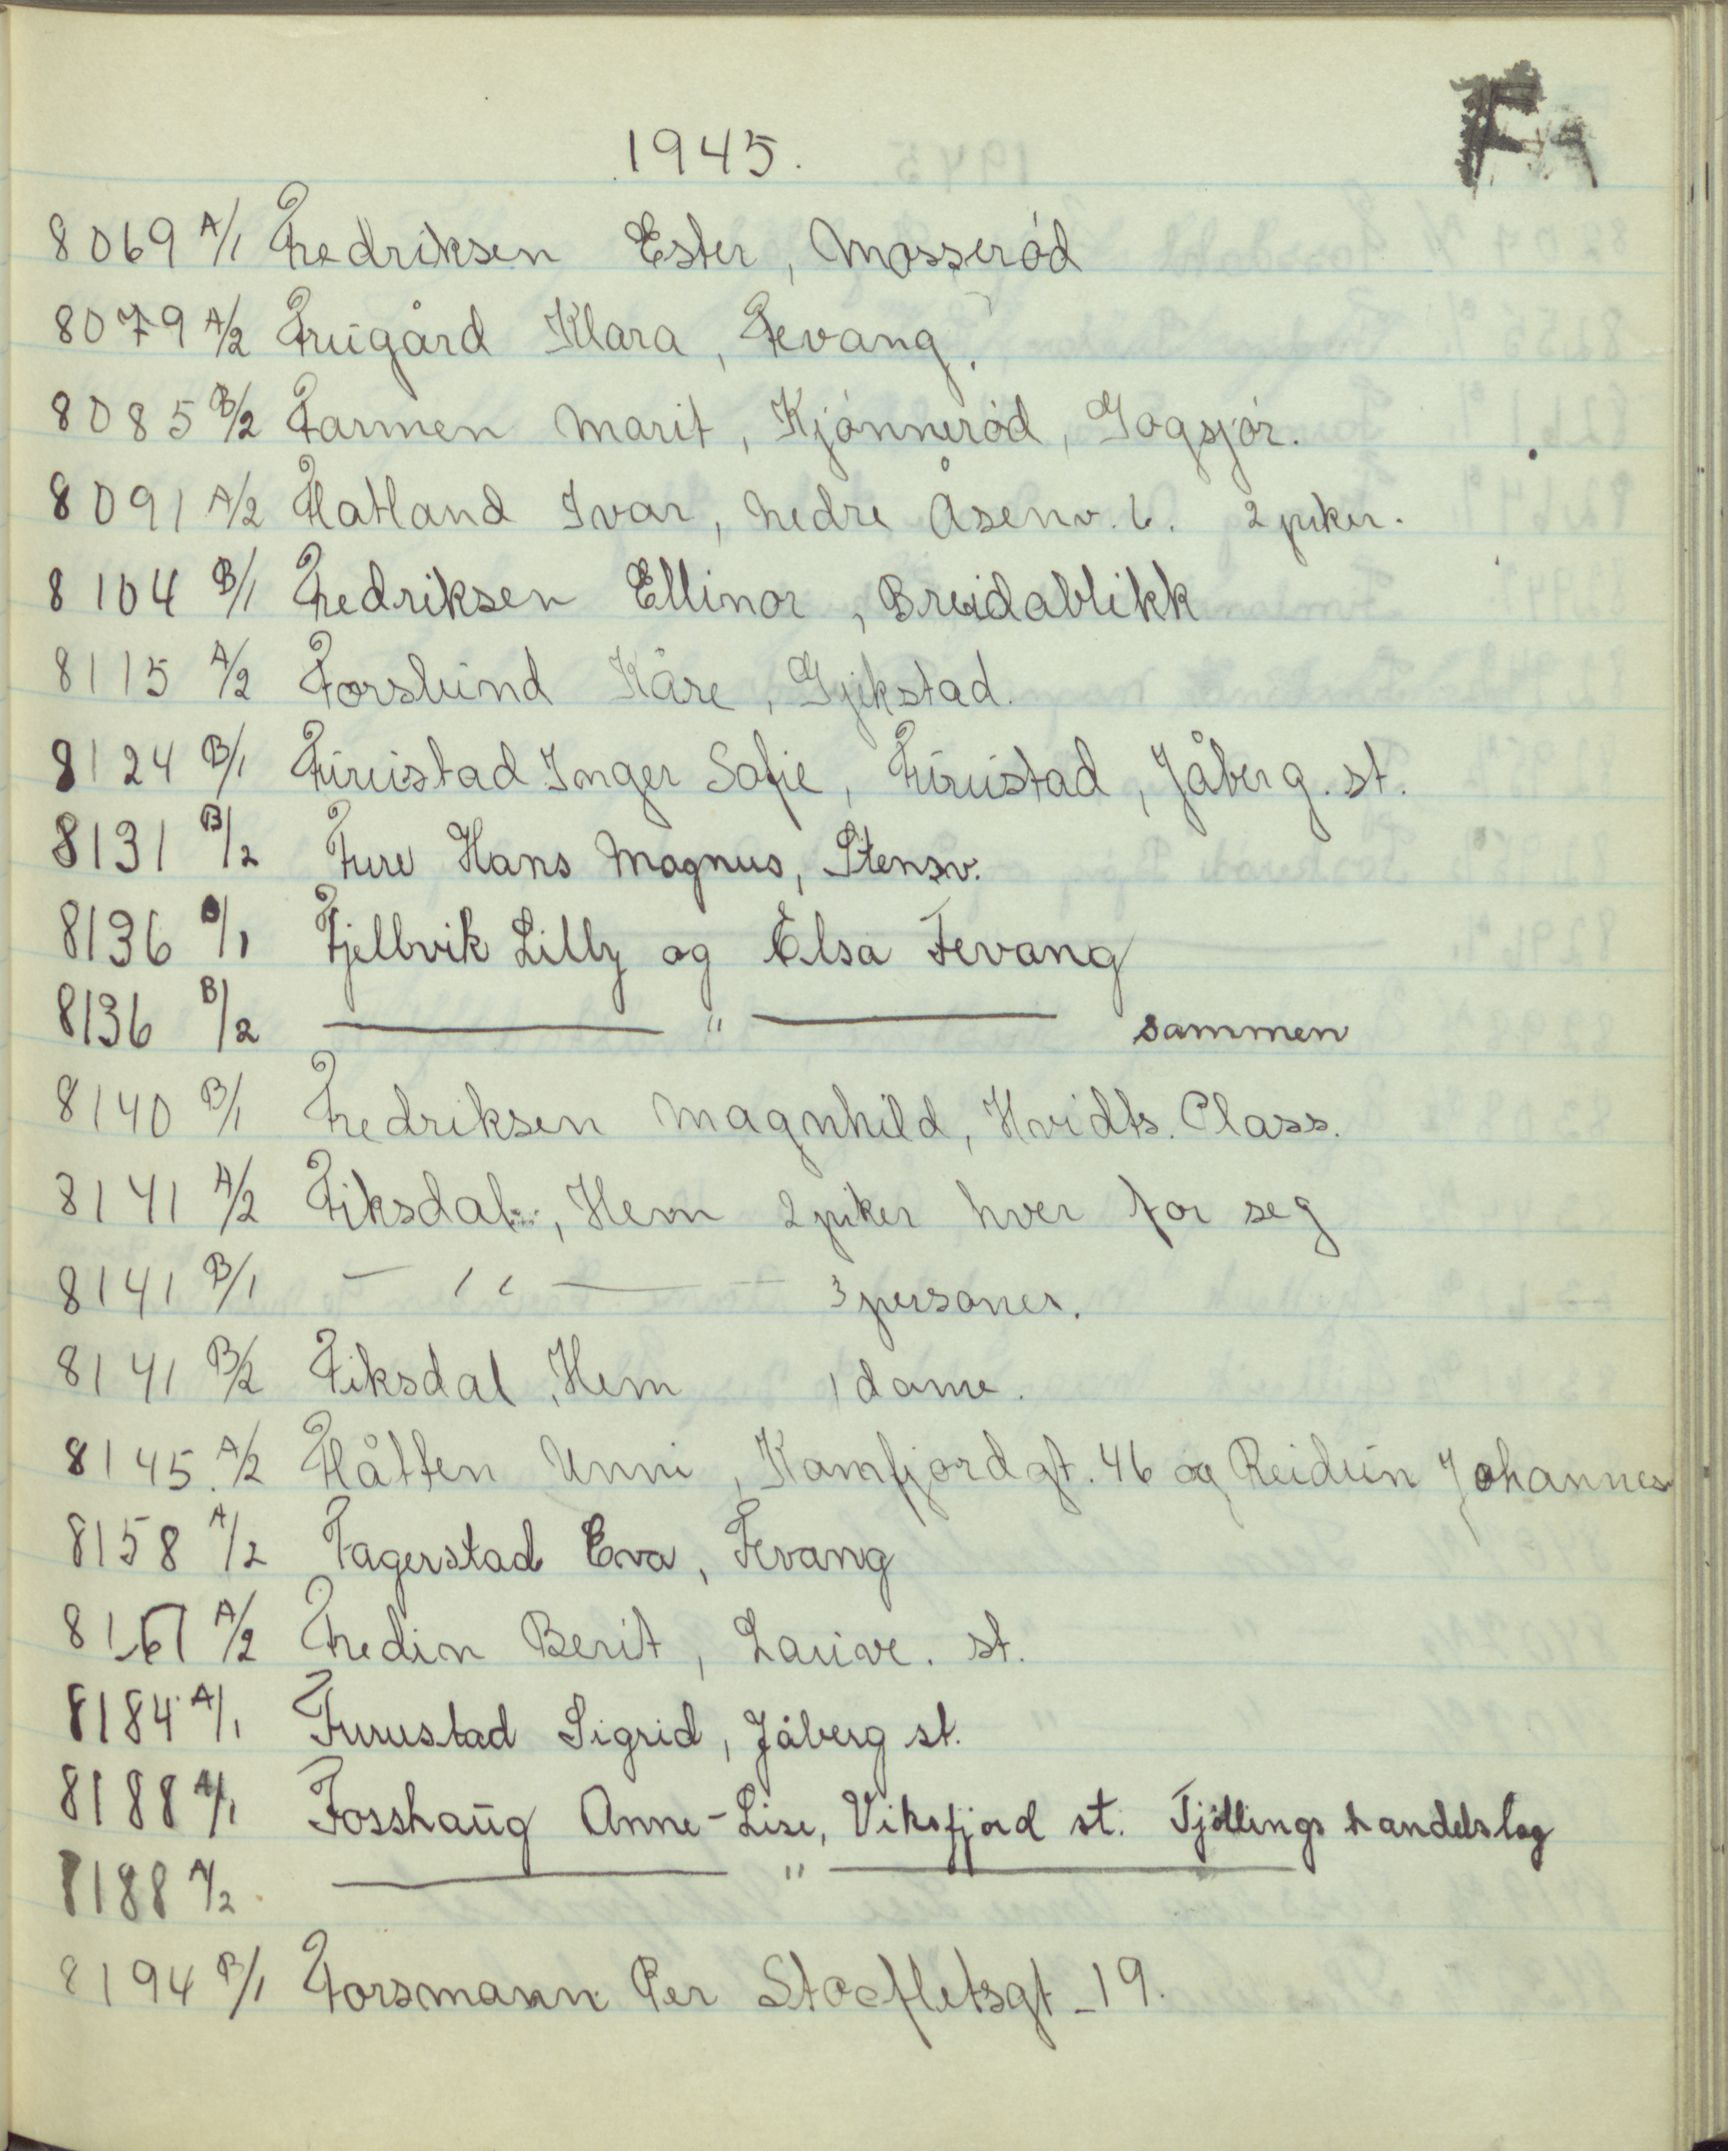 F
1945.
8069 A/1 Fredriksen Ester, Mosserød
8079 A/2 Frugård Klara, Fevang.
8085 B/2 Farmen Marit, Kjønnerød, Gogsjør.
8091 A/2 Flatland Ivar, nedre Åsenv. 6. 2 piker.
8104 B/1 Fredriksen Ellinor, Breidablikk
8115 A/2 Forslund Kåre, Gjekstad.
8124 B/1 Furustad Inger Sofie, Furustad, Jåberg. st.
8131 B/2 Fure Hans Magnus, Stensv.
8136 B/1 Fjellvik Lilly og Elsa Fevang
8136 B/2 — " — sammen
8140 B/1 Fredriksen Magnhild, Hvidts. Plass.
8141 A/2 Fiksdal, Hem 2 piker hver for seg
8141 B/1 — " — 3 personer.
8141 B/2 Fiksdal, Hem 1 dame.
8145. A/2 Flåtten Unni, Kamfjordgt. 46 og Reidun Johannes
8158 A/2 Fagerstad Eva, Fevang
8161 A/2 Fredin Berit, Lauve. st.
8184 A/1 Furustad Sigrid, Jåberg st.
8188 A/1 Fosshaug Anne-Lise, Viksfjord st. Tjøllings handelslag
8188 A/2. — " —
8194 B/1 Forsmann Per Stockfletsgt - 19.